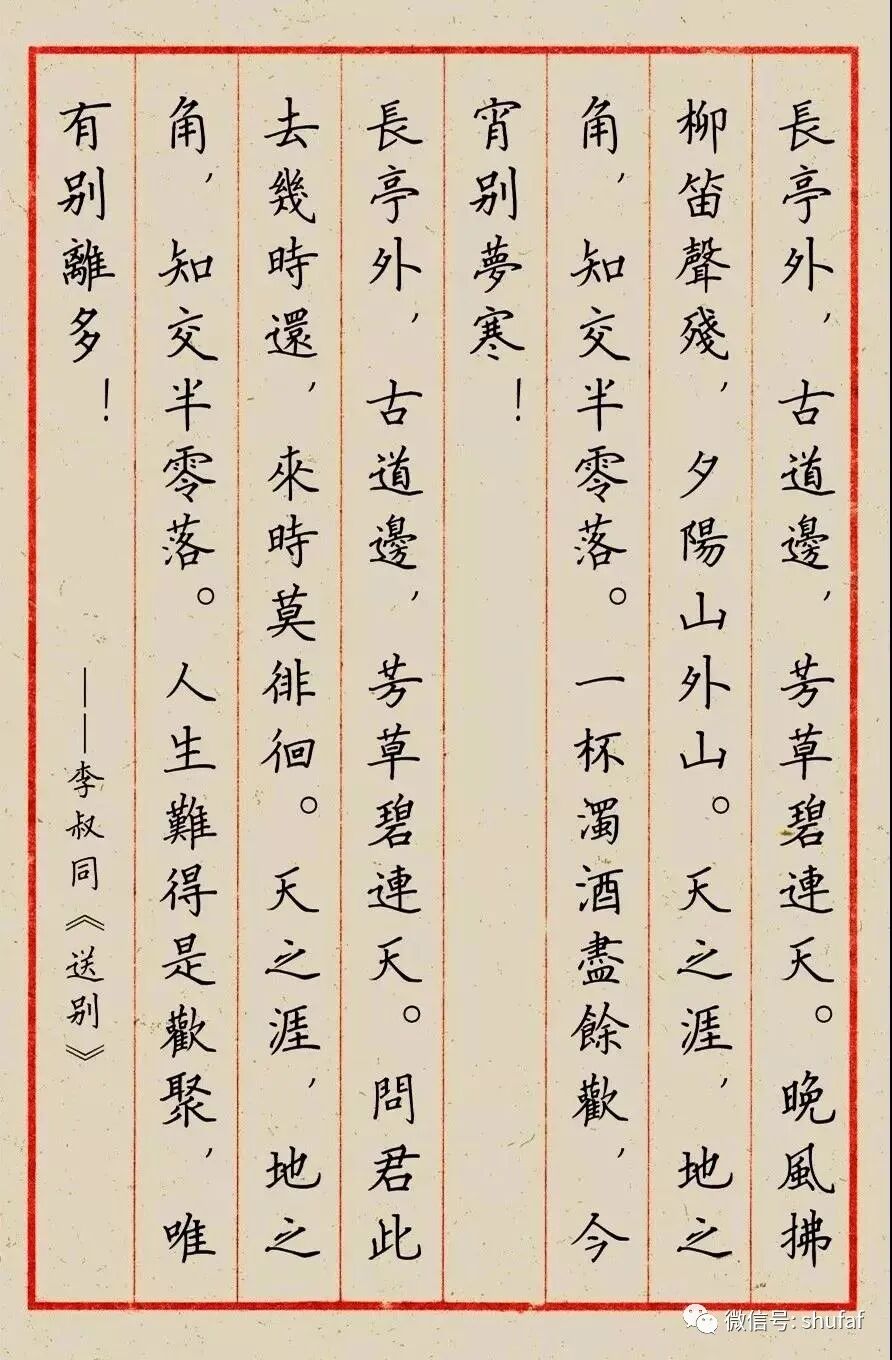 長亭外，古道邊，芳草碧連天。晚風拂
柳笛聲殘，夕陽山外山。天之涯，地之
角，知交半零落。一杯濁酒盡餘歡，今
宵别夢寒！
長亭外，古道邊，芳草碧連天。問君此
去幾時還，來時莫徘徊。天之涯，地之
角，知交半零落。人生難得是歡聚，唯
有别離多！
——李叔同《送别》
微信号: shufaf